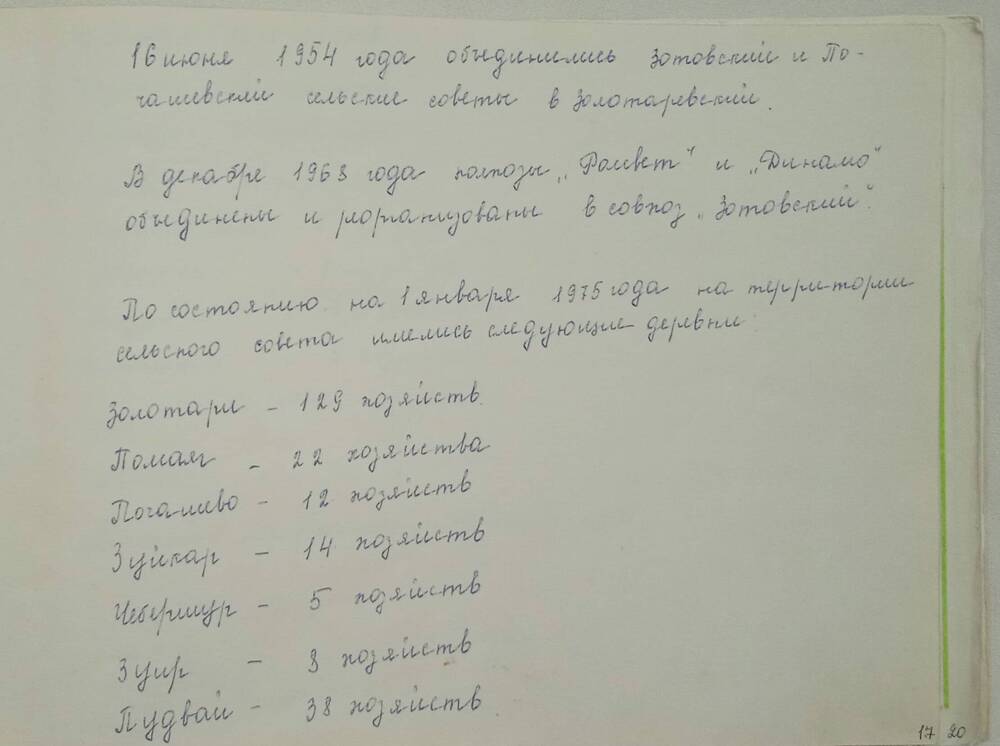 16 июня 1954 года объединились Зотовский и По-
чашевский сельские советы в Золотаревский.
В декабре 1963 года колхозы „Рассвет" и „Динамо"
объединены и реорганизованы в совхоз „Зотовский".
По состоянию на 1 января 1975 года на территории
сельского совета имелись следующие деревни:
Золотари - 129 хозяйств.
Помаяг - 22 хозяйства
Почашево - 12 хозяйств
Зуйкар - 14 хозяйств
Чебершур - 5 хозяйств
Зуир - 3 хозяйств
Пудвай - 38 хозяйств
17 20